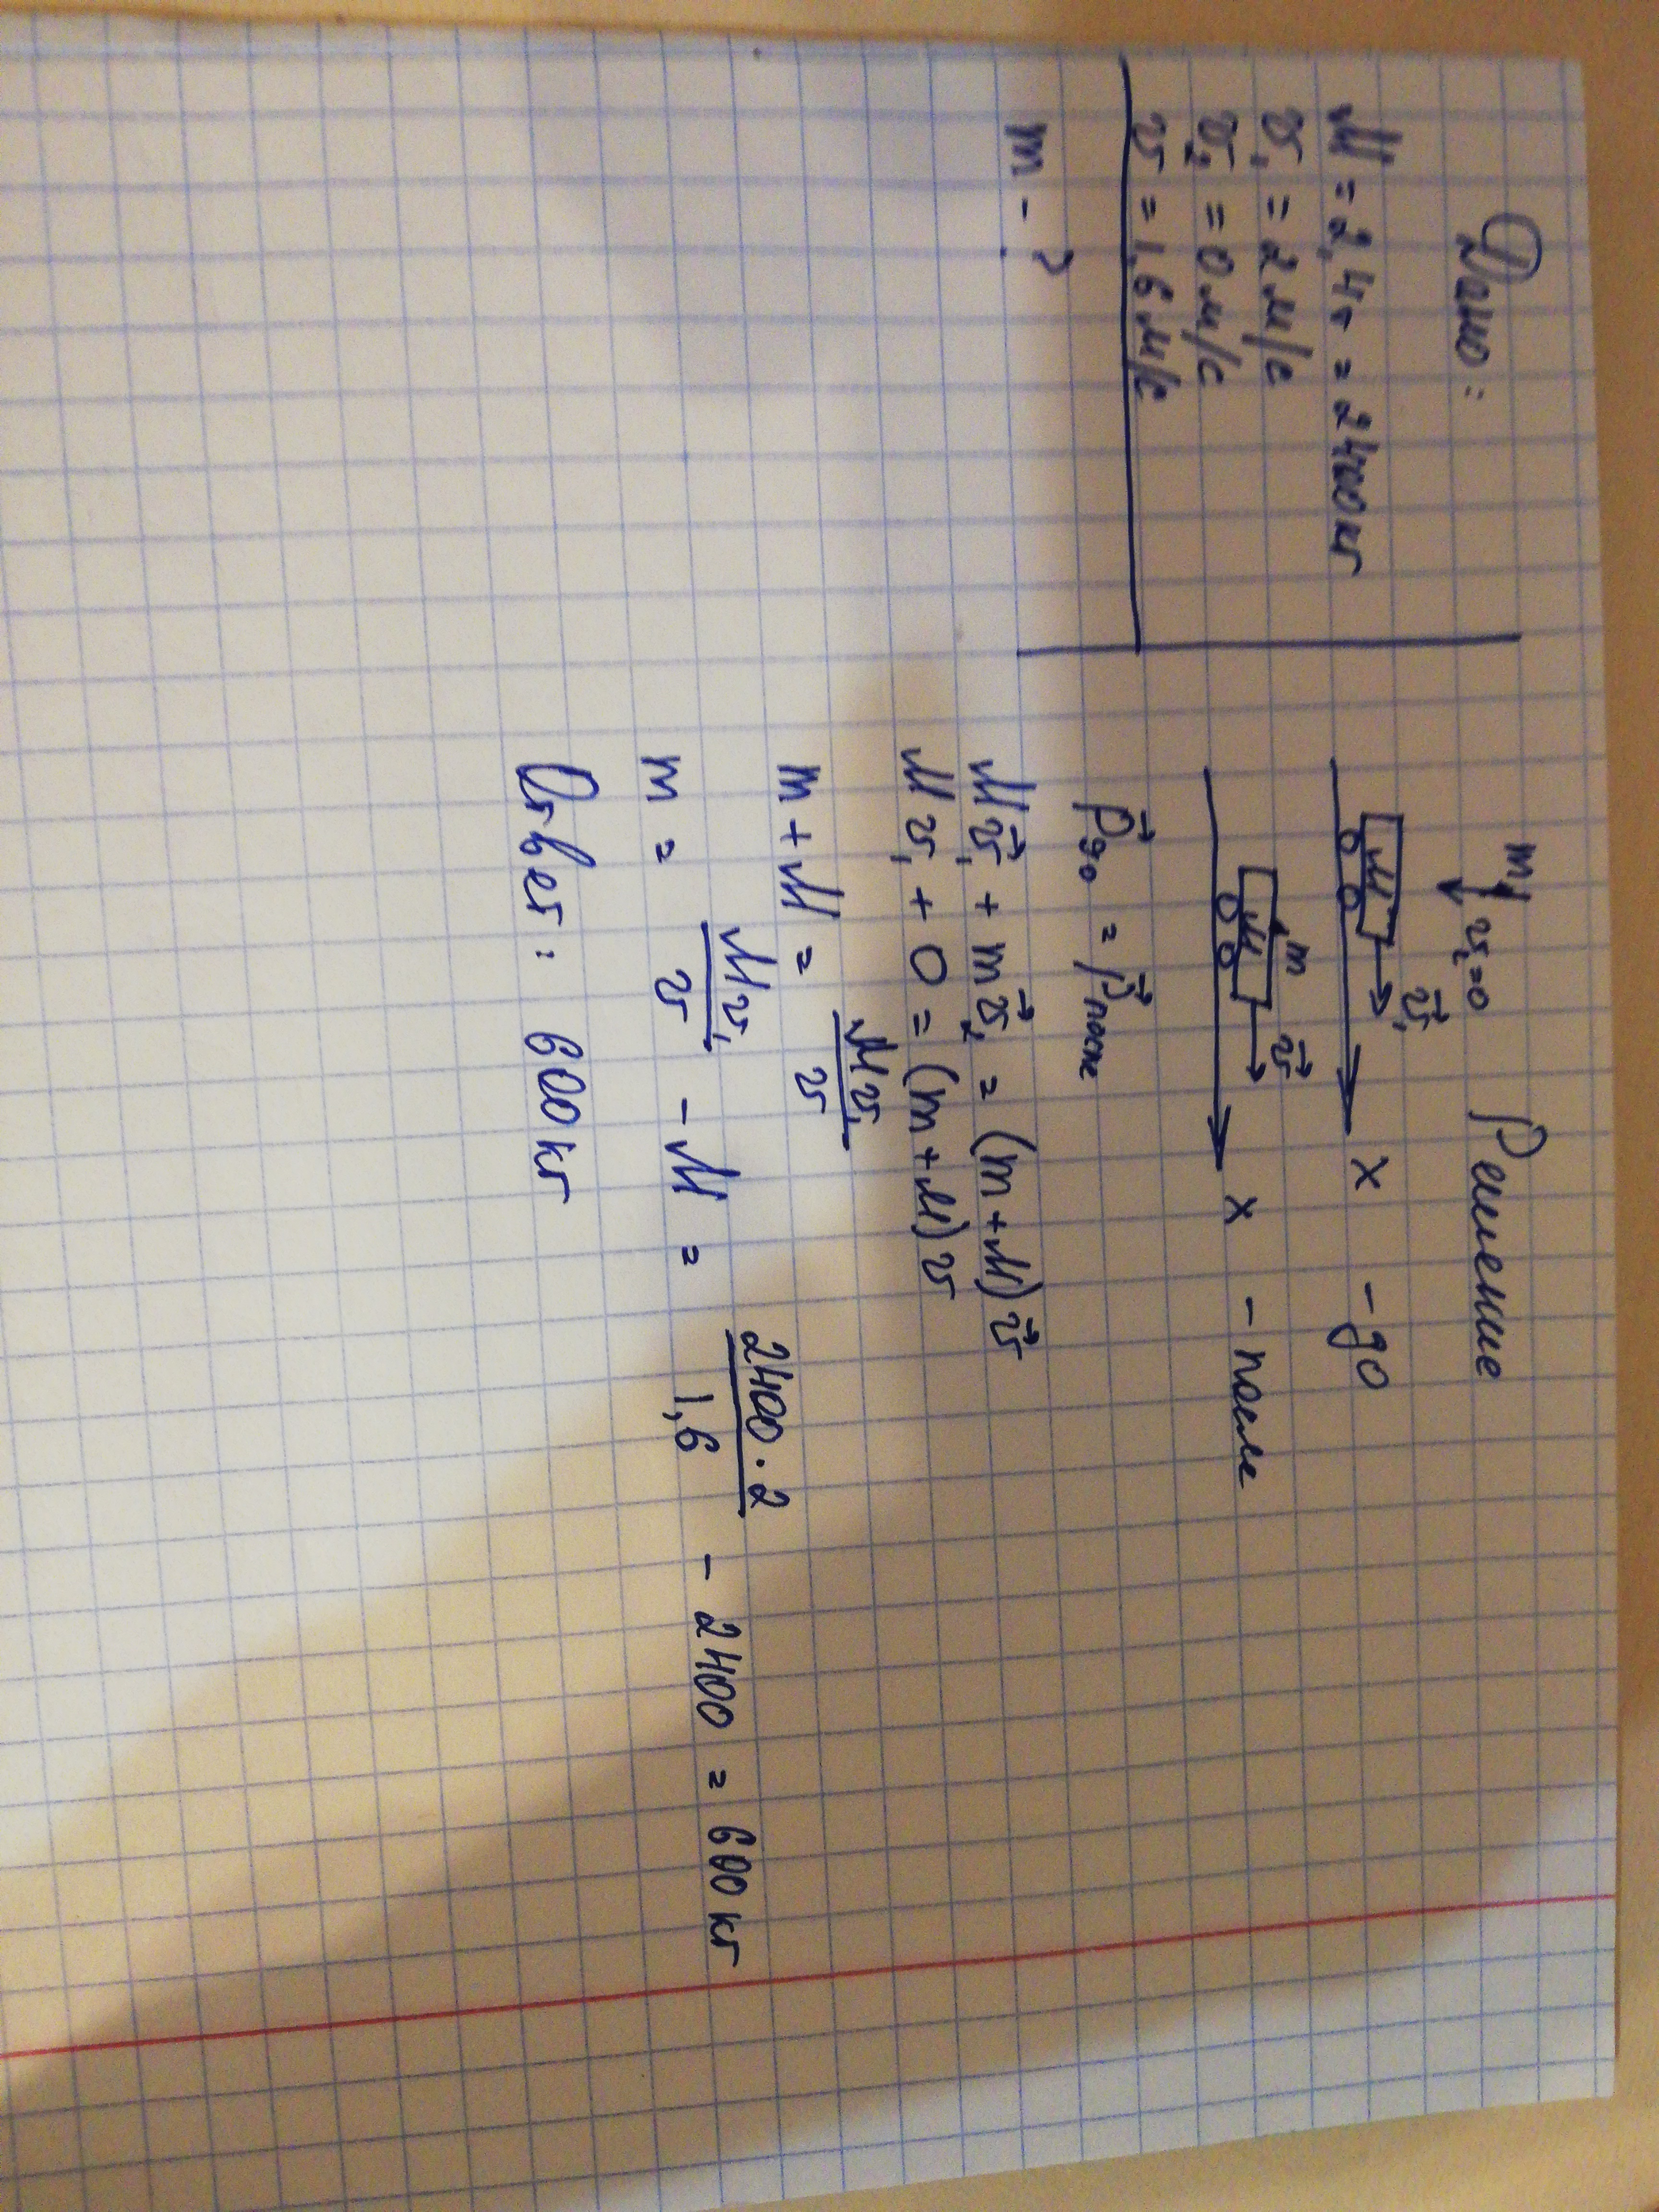 Дано:
M = 2,4т = 2400кг
v₁ = 2 м/с
v₂ = 0 м/с
v = 1,6 м/с
m - ?
Решение
m v₂=0
M v⃗₁ x - до
m M v⃗ x - после
p⃗до = p⃗после
Mv⃗₁ + mv⃗₂ = (m+M)v⃗
Mv₁ + 0 = (m+M)v
m+M = Mv₁/v
m = Mv₁/v - M = 2400·2/1,6 - 2400 = 600 кг
Ответ: 600кг